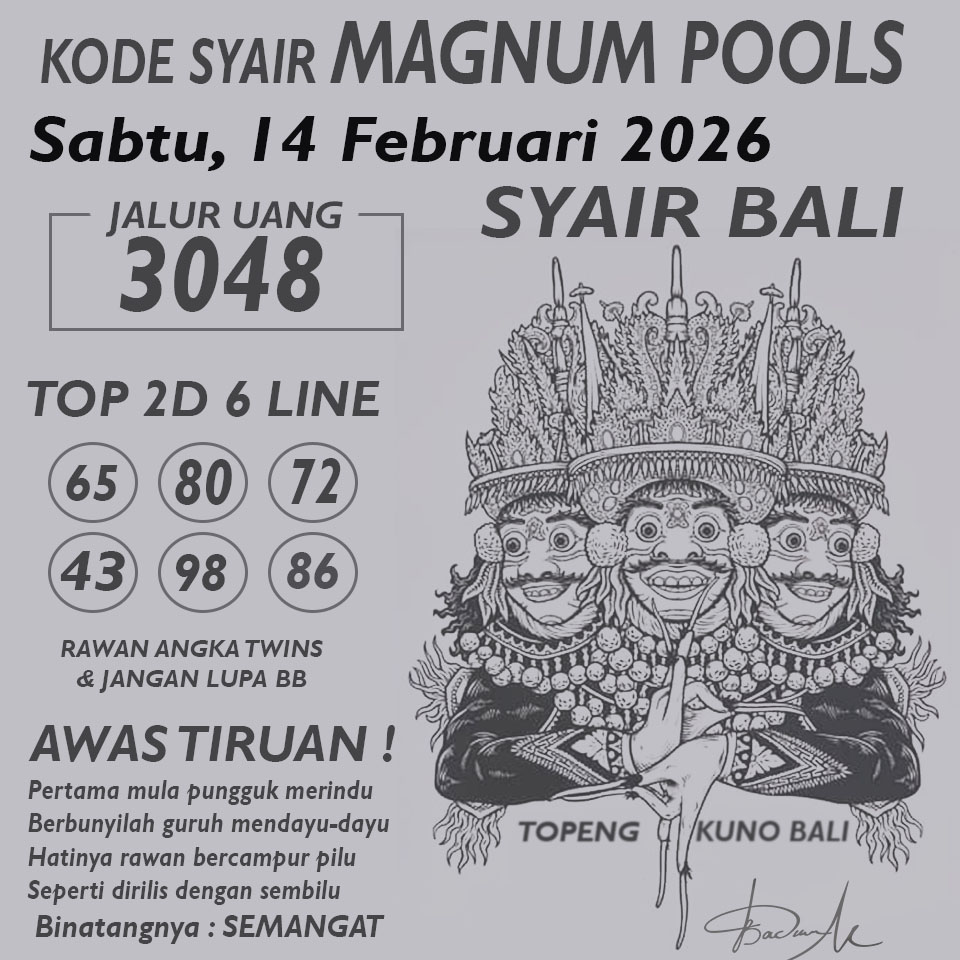 KODE SYAIR MAGNUM POOLS
Sabtu, 14 Februari 2026
SYAIR BALI
JALUR UANG
3048
TOP 2D 6 LINE
65 80 72
43 98 86
RAWAN ANGKA TWINS
& JANGAN LUPA BB
AWAS TIRUAN !
Pertama mula pungguk merindu
Berbunyilah guruh mendayu-dayu
Hatinya rawan bercampur pilu
Seperti dirilis dengan sembilu
Binatangnya : SEMANGAT
TOPENG KUNO BALI